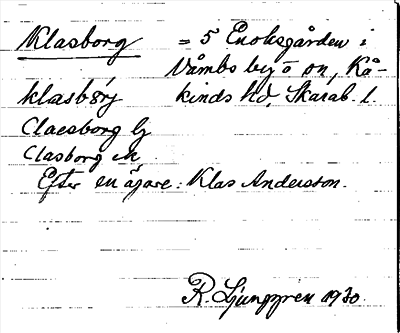 Klasborg = 5 Enoksgården i
Våmbs by o sn, Kå-
klasbórj kinds hd, Skarab. l.
Claesborg lj
Clasborg ek
Efter en ägare: Klas Andersson.
R. Ljunggren 1930.